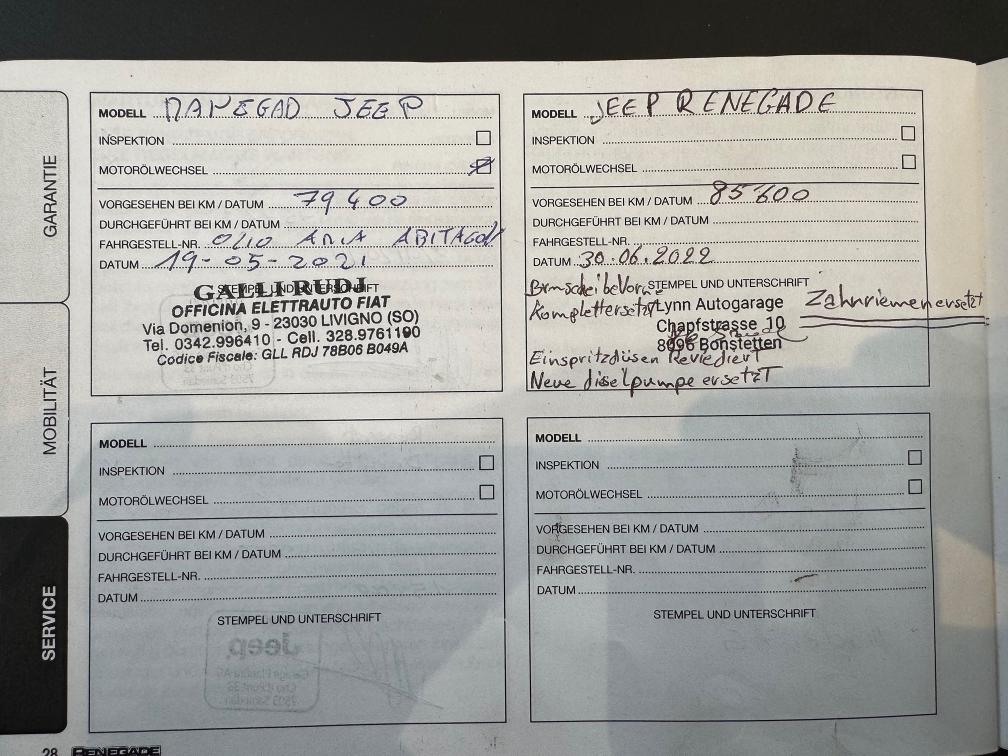 GARANTIE
MOBILITÄT
SERVICE
MODELL RANEGAD JEEP
INSPEKTION
MOTORÖLWECHSEL
VORGESEHEN BEI KM / DATUM 79400
DURCHGEFÜHRT BEI KM / DATUM
FAHRGESTELL-NR. OLIO ARIA ABITACOL
DATUM 19-05-2021
STEMPEL UND UNTERSCHRIFT
GALLI RUDI
OFFICINA ELETTRAUTO FIAT
Via Domenion, 9 - 23030 LIVIGNO (SO)
Tel. 0342.996410 - Cell. 328.9761190
Codice Fiscale: GLL RDJ 78B06 B049A
MODELL JEEP RENEGADE
INSPEKTION
MOTORÖLWECHSEL
VORGESEHEN BEI KM / DATUM 85600
DURCHGEFÜHRT BEI KM / DATUM
FAHRGESTELL-NR.
DATUM 30.06.2022
STEMPEL UND UNTERSCHRIFT
Bremscheibe Vorne
Komplettersetzt
Lynn Autogarage
Chapfstrasse 10
8096 Bonstetten
Zahnriemen ersetzt
Einspritzdüsen Revediert
Neue diselpumpe ersetzt
MODELL
INSPEKTION
MOTORÖLWECHSEL
VORGESEHEN BEI KM / DATUM
DURCHGEFÜHRT BEI KM / DATUM
FAHRGESTELL-NR.
DATUM
STEMPEL UND UNTERSCHRIFT
MODELL
INSPEKTION
MOTORÖLWECHSEL
VORGESEHEN BEI KM / DATUM
DURCHGEFÜHRT BEI KM / DATUM
FAHRGESTELL-NR.
DATUM
STEMPEL UND UNTERSCHRIFT
28 RENEGADE